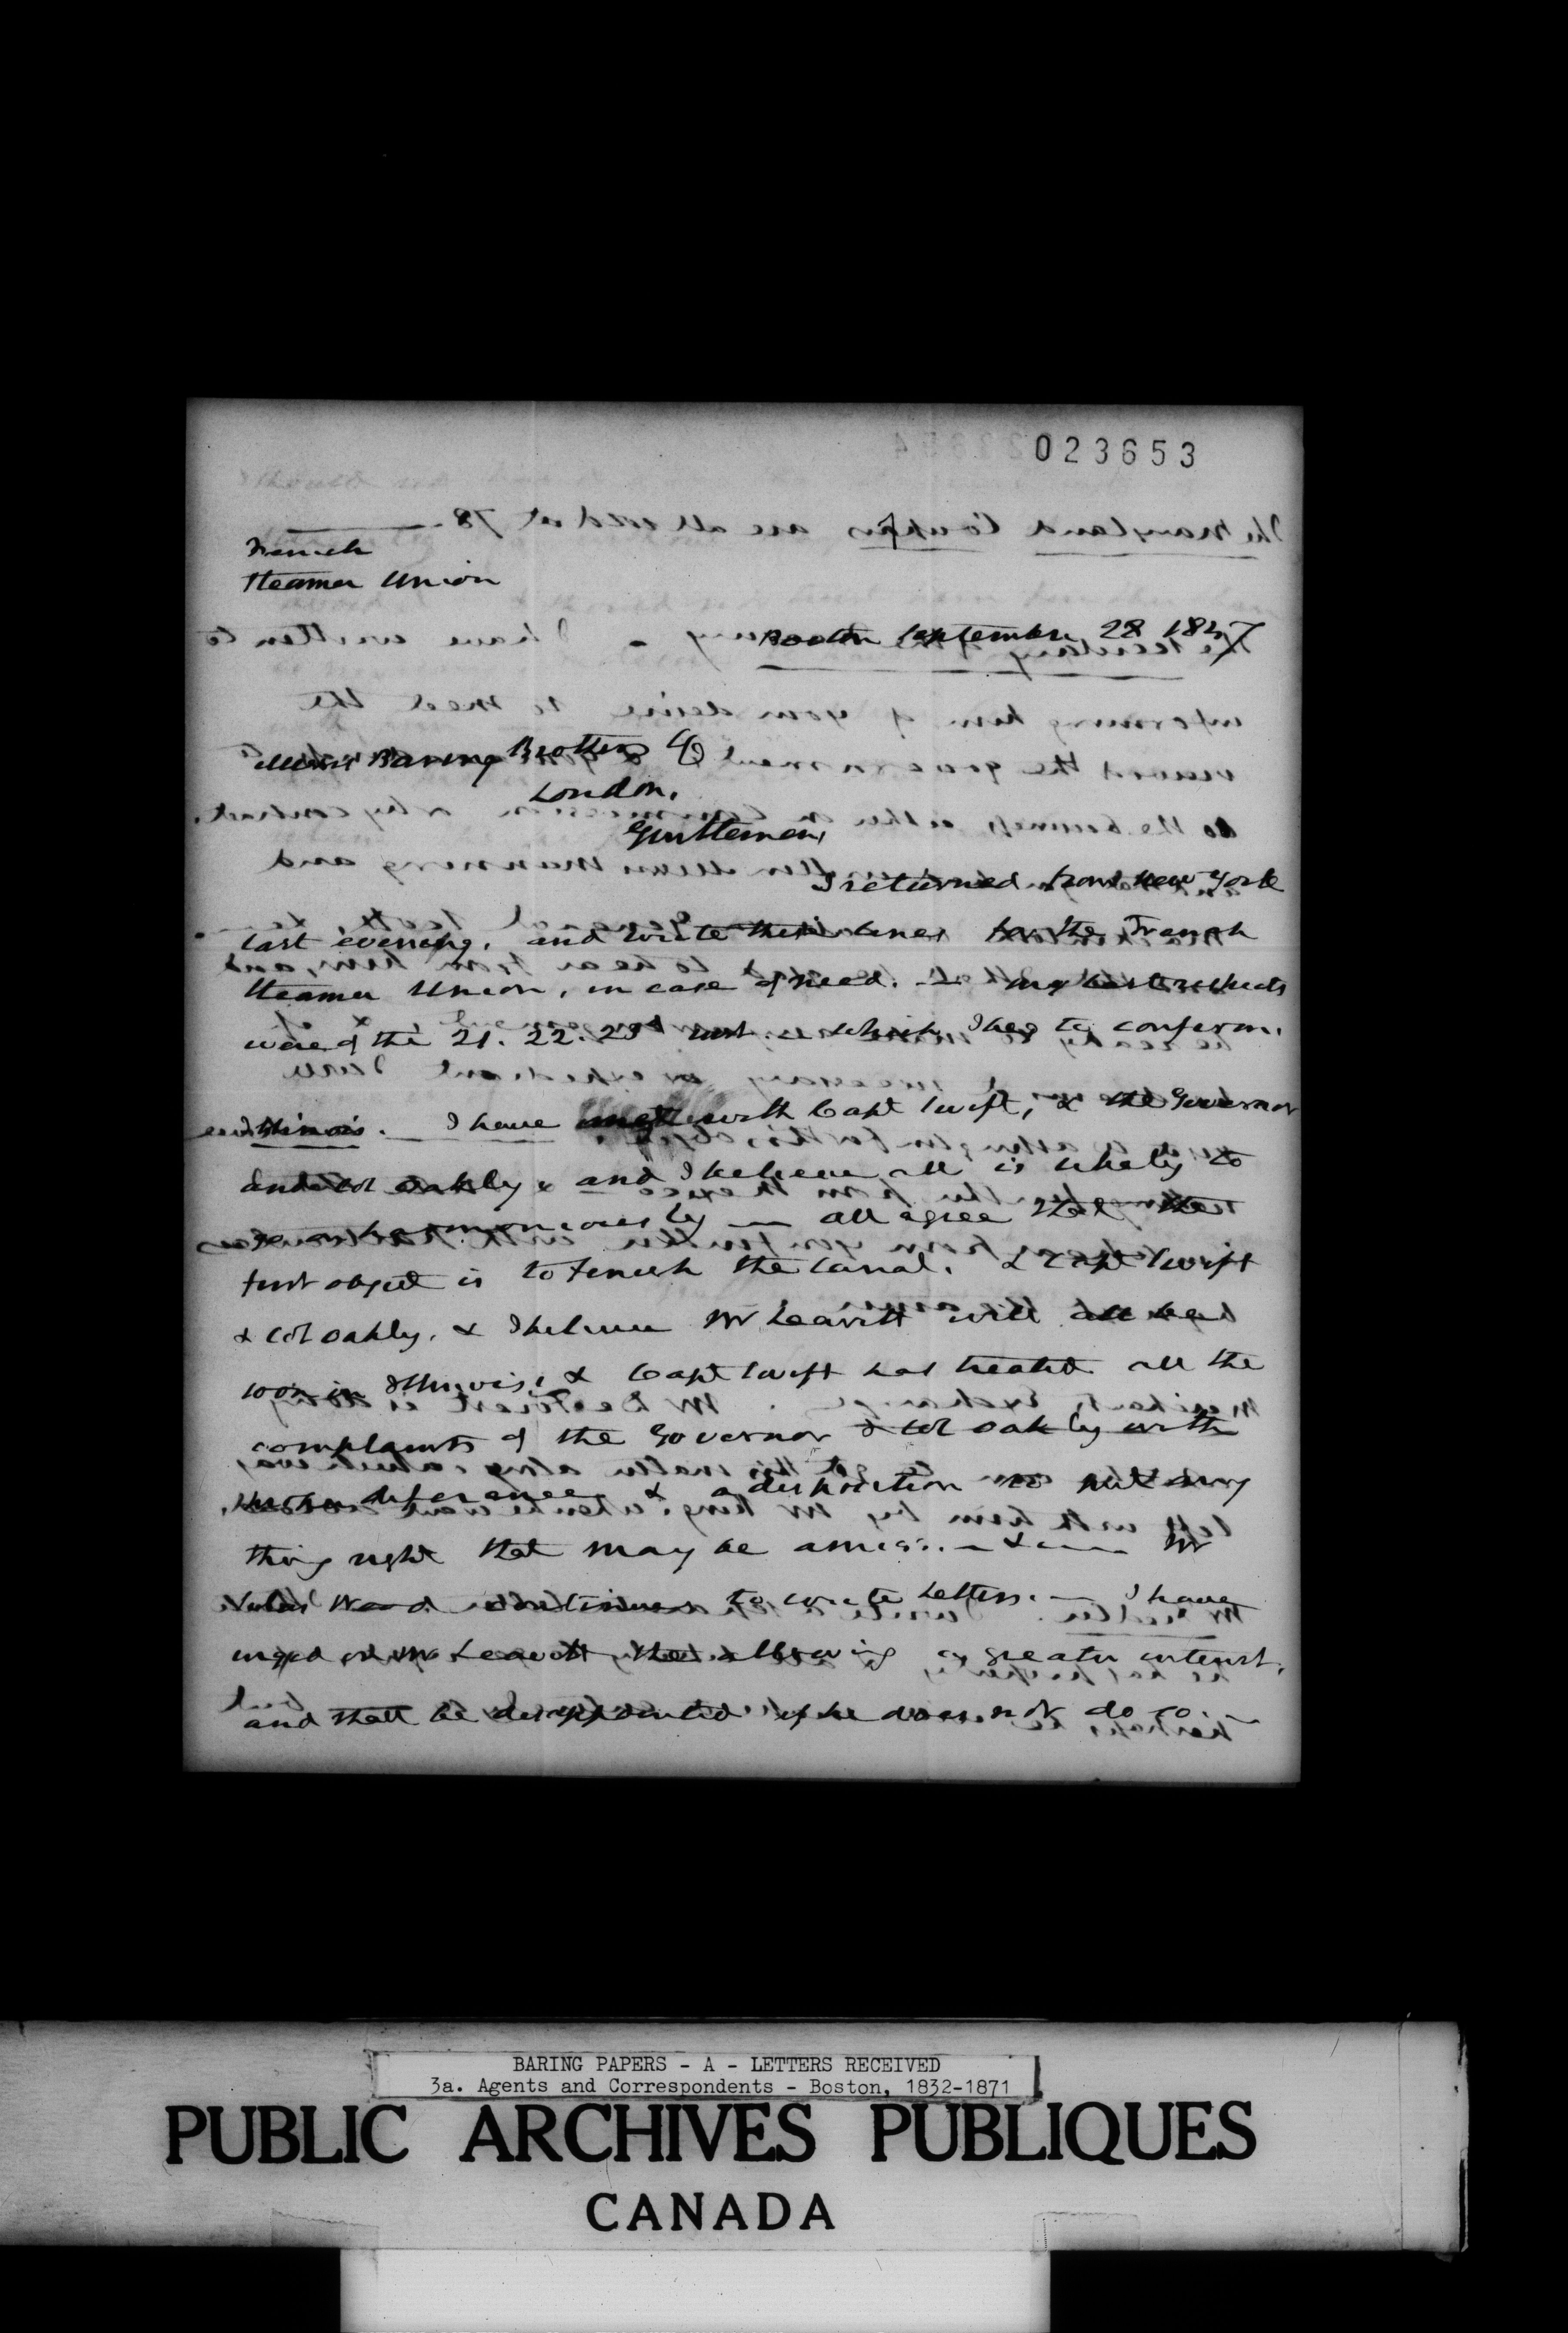 023653
French
Steamer Union
Boston September 28 1847
Messrs Baring Brothers & Co
London.
Gentlemen,
I returned from New York
last evening, and write these lines for the French
Steamer Union, in case of need. — my last respects
were of the 21. 22. 23d inst. which I beg to confirm.
Illinois. I have met with Capt Swift, & the Governor
and Col Oakly & and I believe all is likely to
go on harmoniously — all agree that the
first object is to finish the Canal. & Capt Swift
& Col Oakly. & I believe Mr Leavitt will all be
soon in Illinois. & Capt Swift has treated all the
complaints of the Governor & Col Oakly with
deference & a disposition to put any
thing right that may be amiss. — & — Mr
Ward continues to write Letters. — I have
urged on Mr Leavitt the allowing a greater interest,
and shall be disappointed if he does not do so —
BARING PAPERS - A - LETTERS RECEIVED
3a. Agents and Correspondents - Boston, 1832-1871
PUBLIC ARCHIVES PUBLIQUES
CANADA